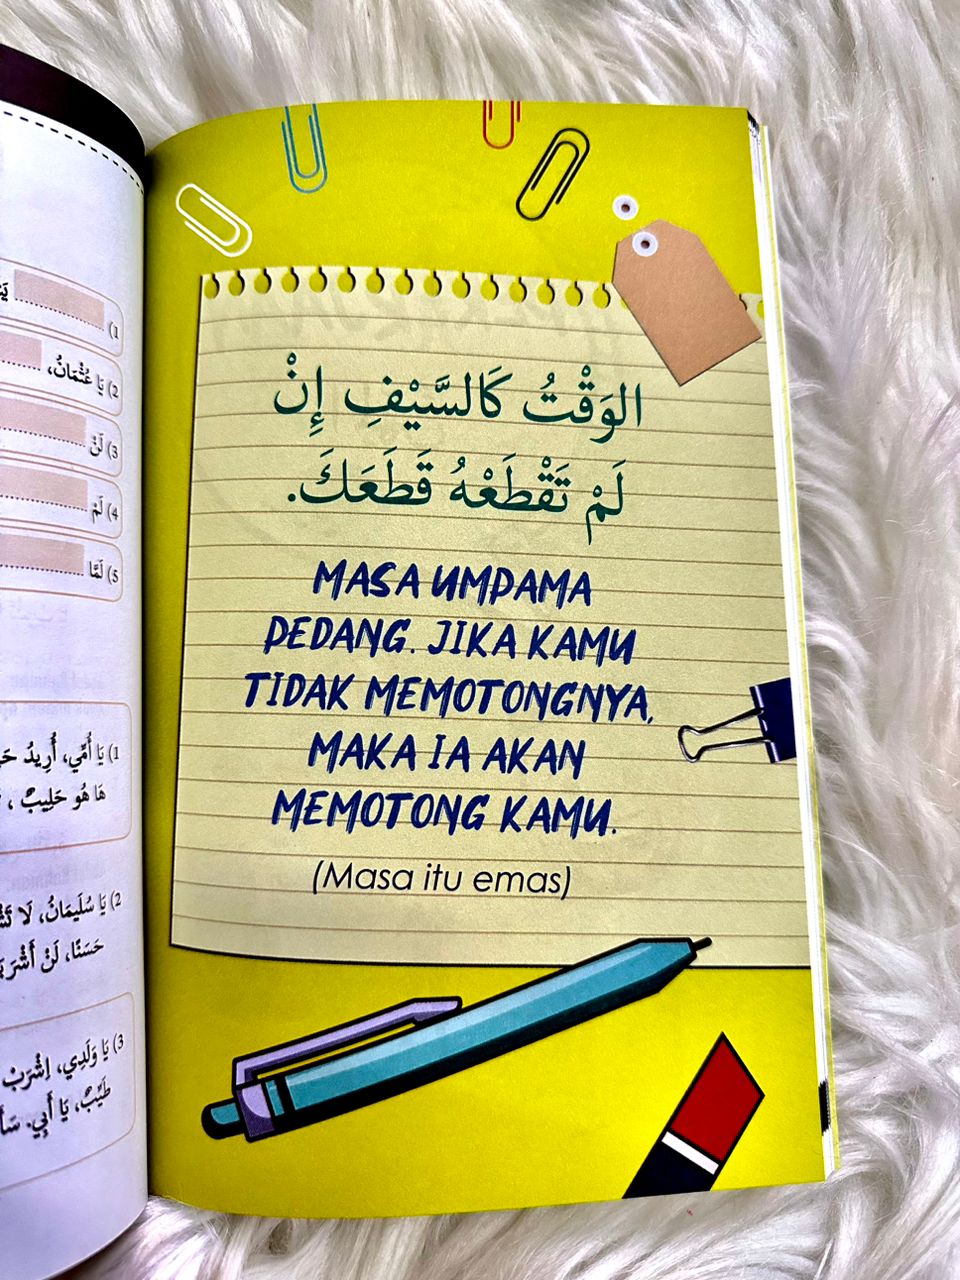 الوَقْتُ كَالسَّيْفِ إِنْ
لَمْ تَقْطَعْهُ قَطَعَكَ.
MASA UMPAMA
PEDANG. JIKA KAMU
TIDAK MEMOTONGNYA,
MAKA IA AKAN
MEMOTONG KAMU.
(Masa itu emas)
1)
2) يَا عُثْمَانُ،
3) لَنْ
4) لَمْ
5) لَمَّا
1) يَا أُمِّي، أُرِيدُ
هَا هُوَ حَلِيبٌ ،
2) يَا سُلَيمَانُ، لَا
حَسَنًا، لَنْ أَشْرَبَ
3) يَا وَلَدِي، اِشْرَبْ
طَيِّبٌ، يَا أَبِي.